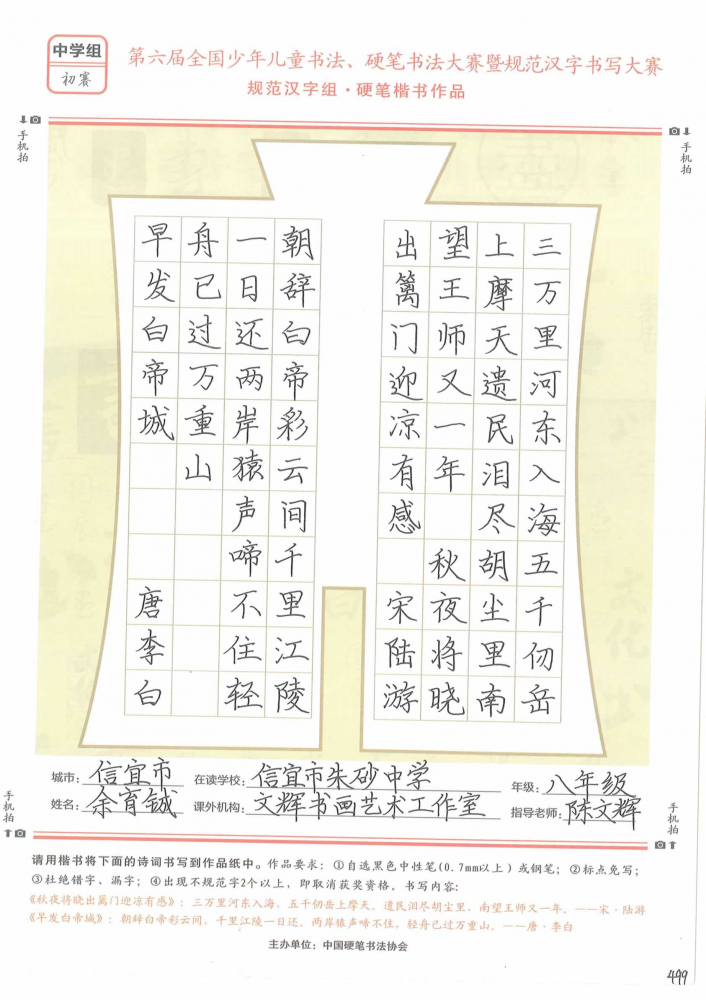 中学组
初赛
第六届全国少年儿童书法、硬笔书法大赛暨规范汉字书写大赛
规范汉字组·硬笔楷书作品
手机拍
手机拍
三万里河东入海五千仞岳
上摩天遗民泪尽胡尘里南
望王师又一年 秋夜将晓
出篱门迎凉有感 宋陆游
朝辞白帝彩云间千里江陵
一日还两岸猿声啼不住轻
舟已过万重山
早发白帝城 唐李白
城市：信宜市 在读学校：信宜市朱砂中学 年级：八年级
姓名：余育铖 课外机构：文辉书画艺术工作室 指导老师：陈文辉
手机拍
手机拍
请用楷书将下面的诗词书写到作品纸中。作品要求：①自选黑色中性笔(0.7mm以上)或钢笔；②标点免写；
③杜绝错字、漏字；④出现不规范字2个以上，即取消获奖资格。书写内容：
《秋夜将晓出篱门迎凉有感》：三万里河东入海，五千仞岳上摩天。遗民泪尽胡尘里，南望王师又一年。——宋·陆游
《早发白帝城》：朝辞白帝彩云间，千里江陵一日还。两岸猿声啼不住，轻舟已过万重山。——唐·李白
主办单位：中国硬笔书法协会
499